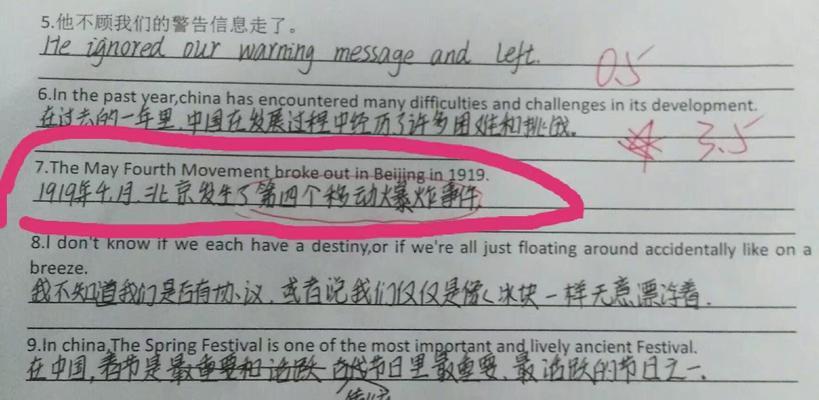 5.他不顾我们的警告信息走了。
He ignored our warning message and left.
0.5
6.In the past year,china has encountered many difficulties and challenges in its development.
在过去的一年里,中国在发展过程中经历了许多困难和挑战。
3.5
7.The May Fourth Movement broke out in Beijing in 1919.
1919年4月,北京发生了第四个移动爆炸事件
8.I don't know if we each have a destiny,or if we're all just floating around accidentally like on a
breeze.
我不知道我们是否有协议,或者说我们仅仅是像冰块一样无意漂浮着.
9.In china,The Spring Festival is one of the most important and lively ancient Festival.
在中国,春节是最重要和活跃古代节日里最重要、最活跃的节日之一.
传统